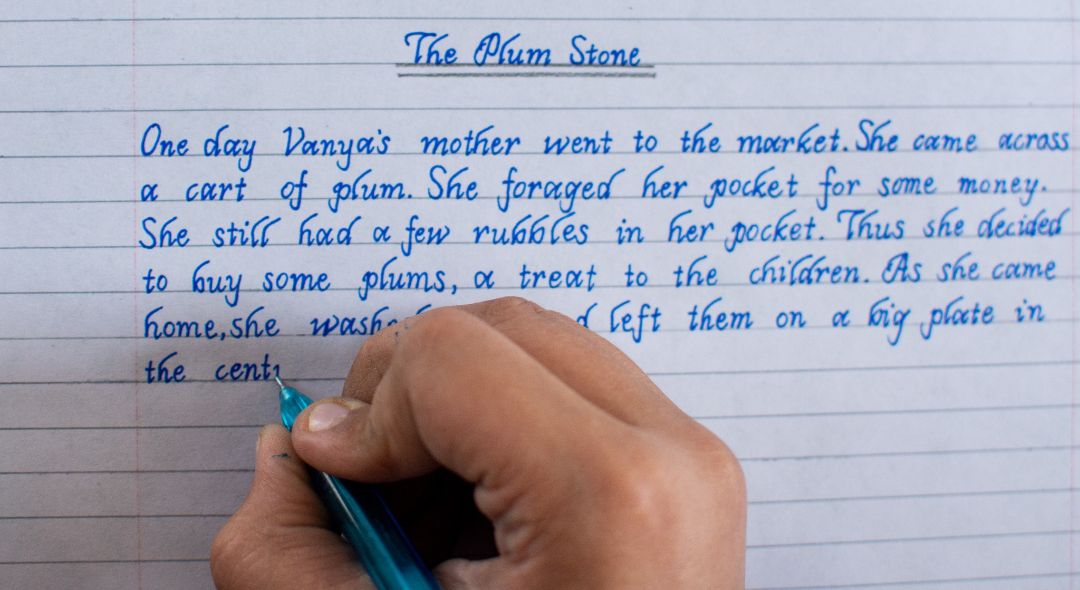 The Plum Stone
One day Vanya's mother went to the market. She came across
a cart of plum. She foraged her pocket for some money.
She still had a few rubbles in her pocket. Thus she decided
to buy some plums, a treat to the children. As she came
home, she left them on a big plate in
the